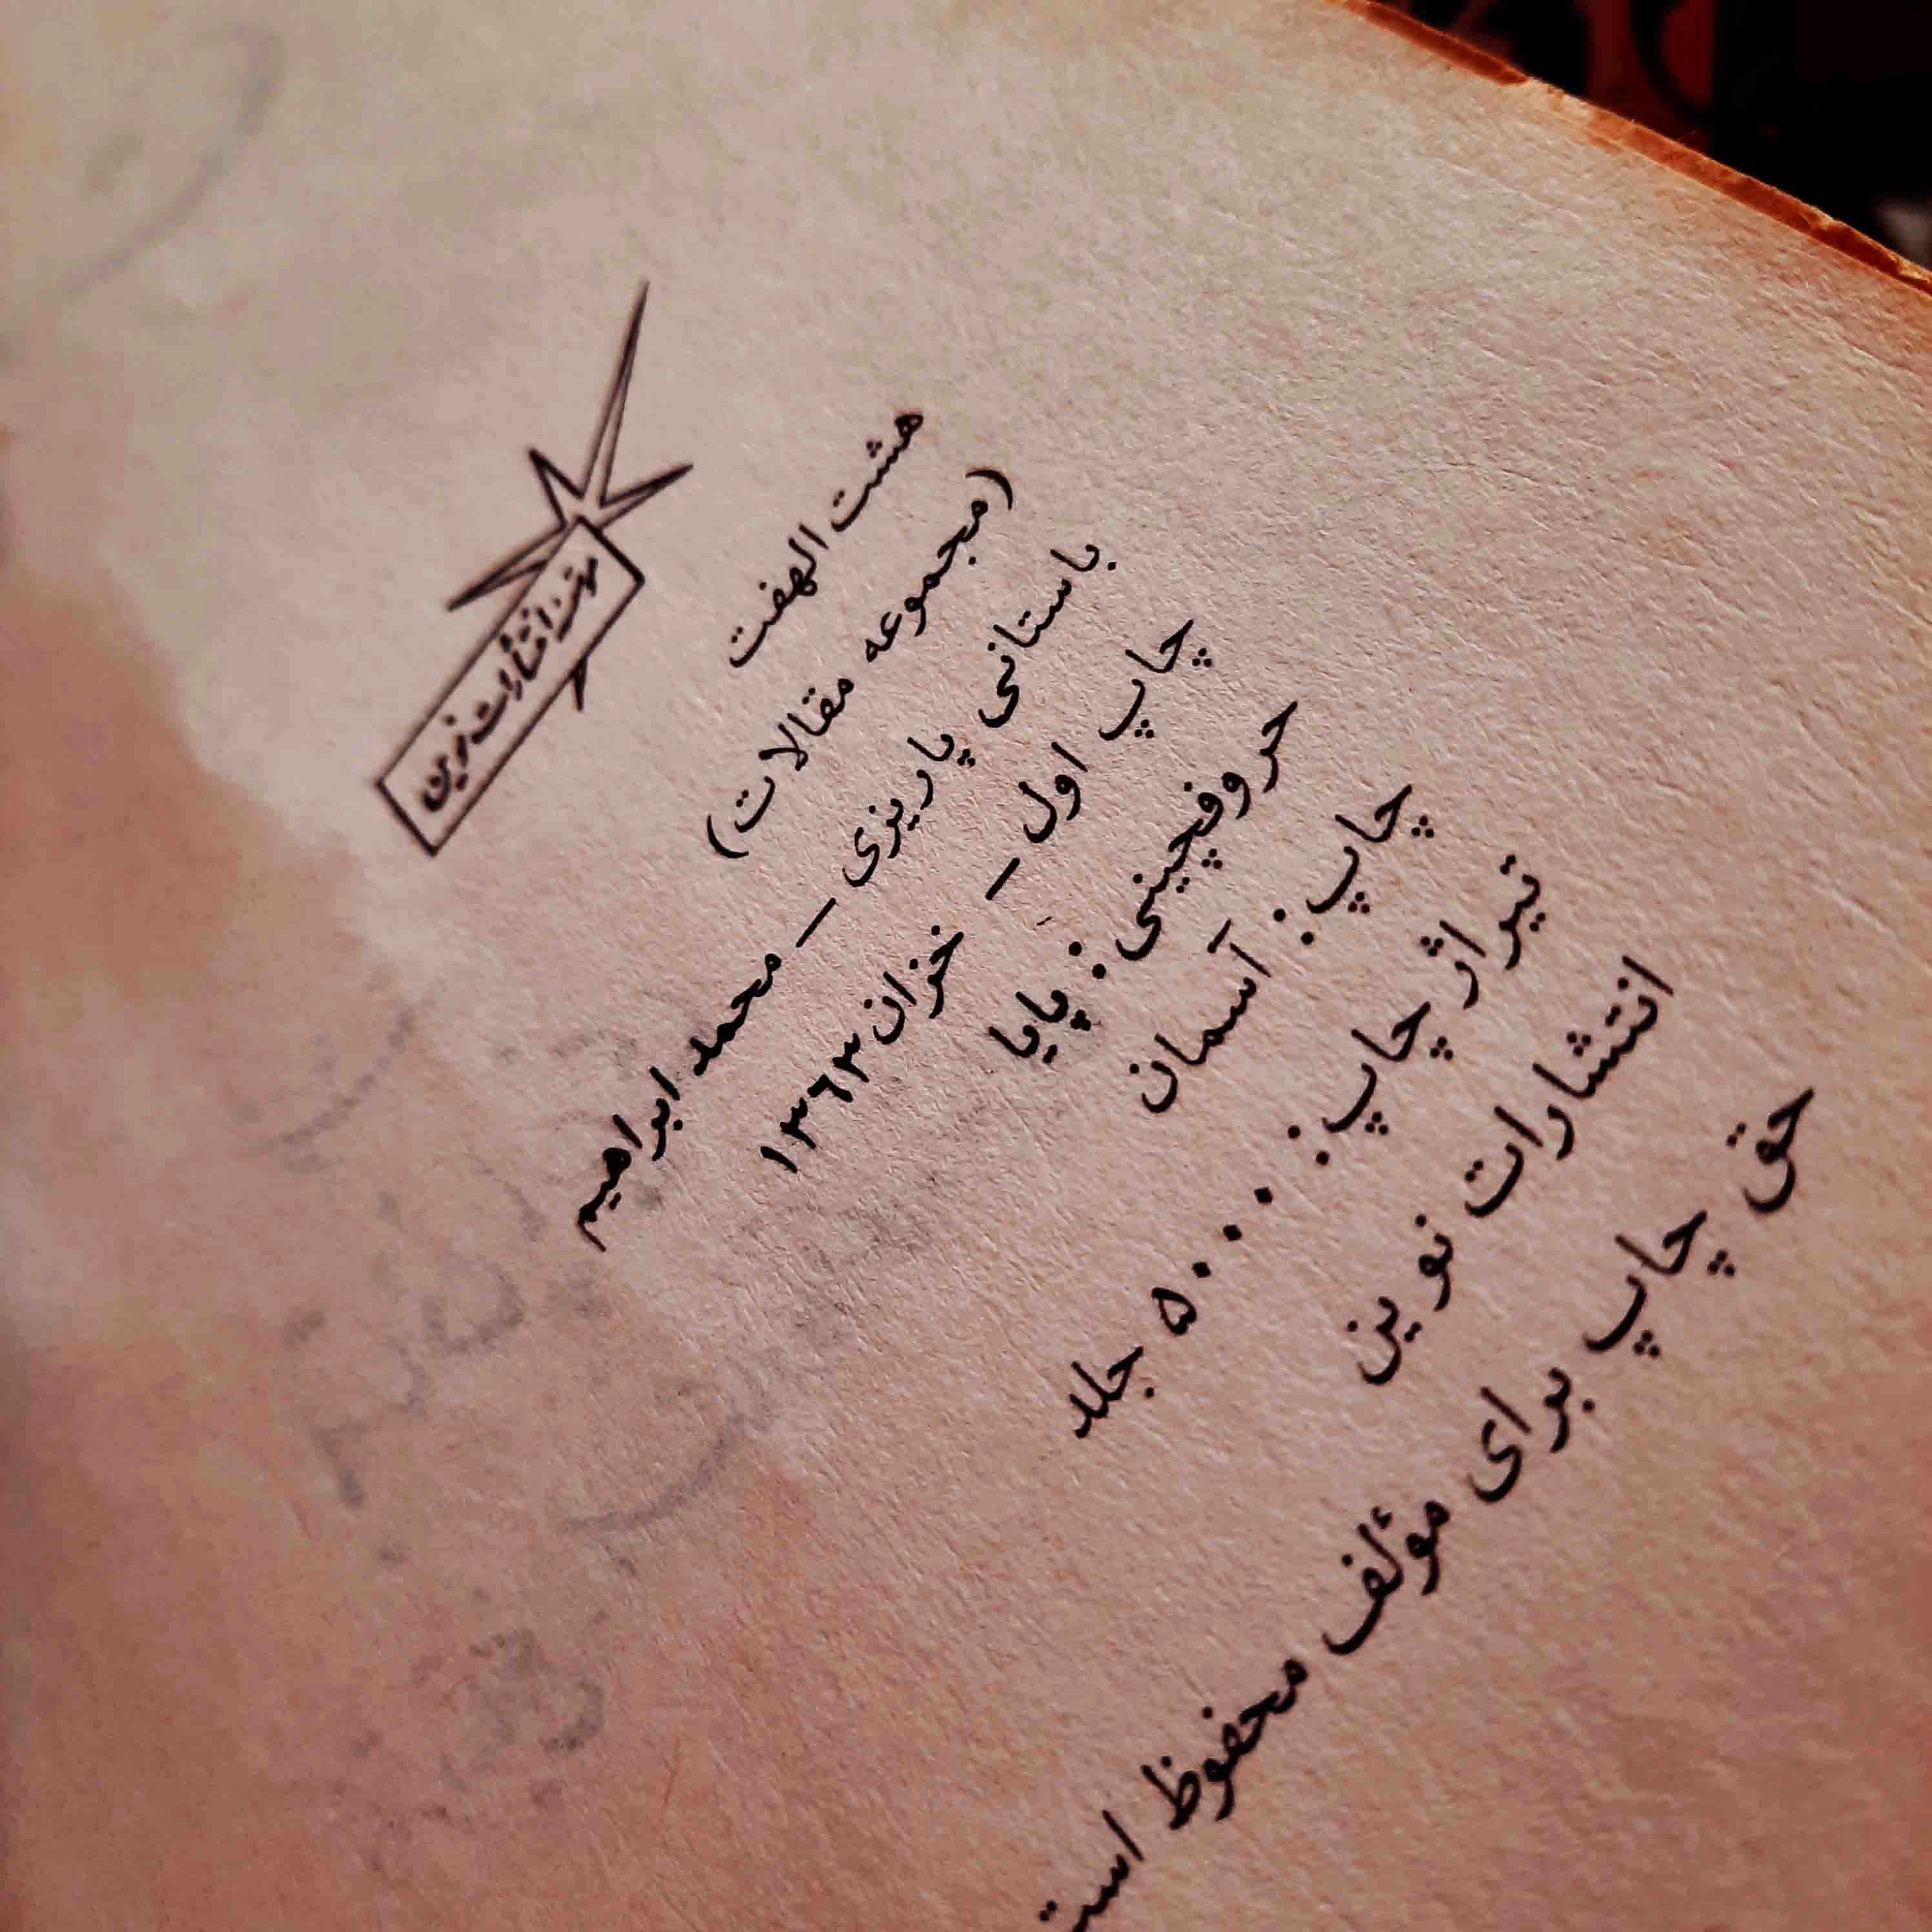 انتشارات نوین
هشت الهفت
(مجموعه مقالات)
باستانی پاریزی – محمد ابراهیم
چاپ اول – خزان ۱۳۶۳
حروفچینی: پایا
چاپ: آسمان
تیراژ چاپ: ۵۰۰۰ جلد
انتشارات نوین
حق چاپ برای مؤلف محفوظ است